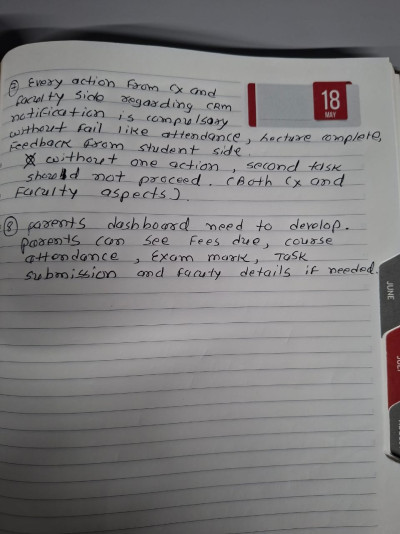 ⑦ Every action from Cx and
faculty side regarding CRM
notification is compulsary
without fail like attendance, Lecture complete,
Feedback from student side.
without one action, second task
should not proceed. (Both Cx and
Faculty aspects).
18
MAY
⑧ parents dashboard need to develop.
parents can see Fees due, course
attendance, Exam mark, Task
submission and Facuty details if needed.
JUNE
JULY